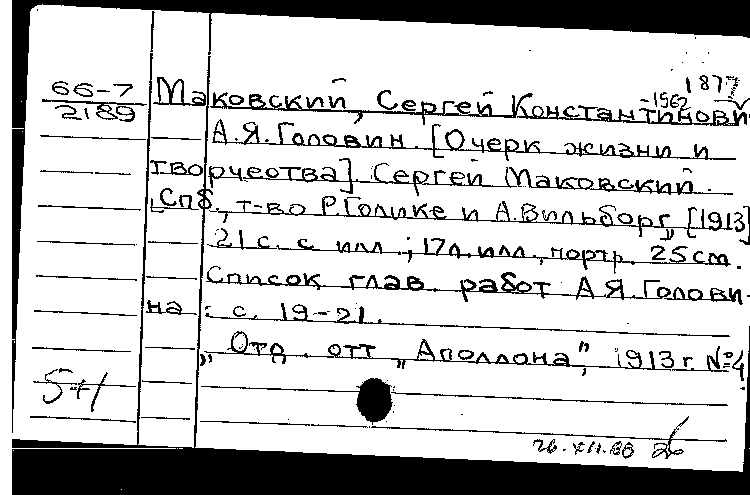 1877
-1962
66-7
2189
Маковский, Сергей Константинович
А.Я.Головин. [Очерк жизни и
творчества]. Сергей Маковский.
[Спб., т-во Р.Голике и А.Вильборг, [1913]
21 с. с илл.; 17 л. илл., портр. 25 см.
Список глав. работ А.Я.Голови-
на: с. 19-21.
„Отд. отт. „Аполлона", 1913 г. №4
5+1
26.XII.66